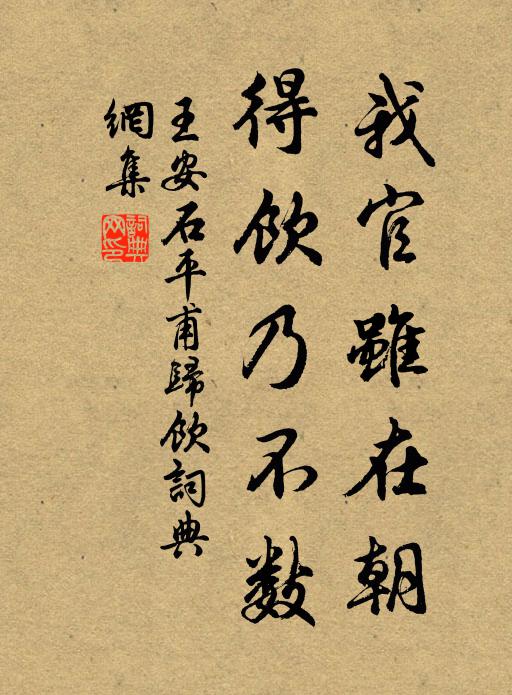 我官雖在朝
得飲乃不数
王安石平甫歸飲詞典
網集
詞典网印